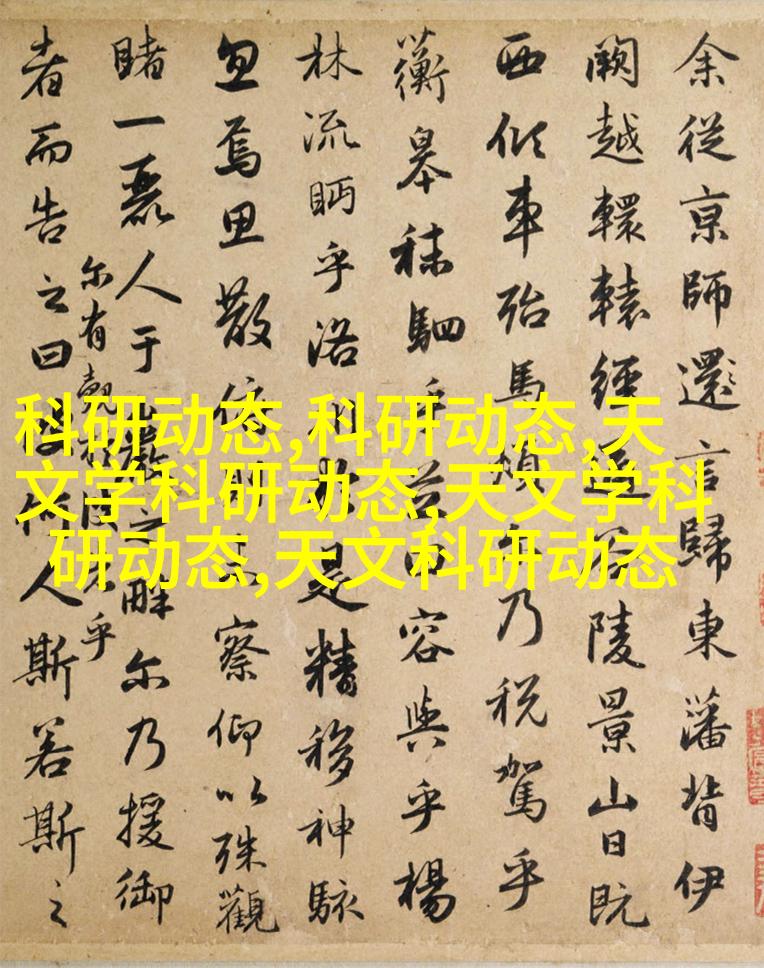 余從京師還言歸東藩背伊
闕越轘轅經通谷陵景山日既
西傾車殆馬煩乃税駕乎
蘅皋秣駟乎芝田容與乎楊
林流眄乎洛川於是精移神駭
忽焉思散俯則察仰以殊觀
睹一麗人于巖之畔尔乃援御
者而告之曰彼何人斯若斯之
尔有覿於乎
科研动态,科研动态,天
文学科研动态,天文学科
研动态,天文科研动态